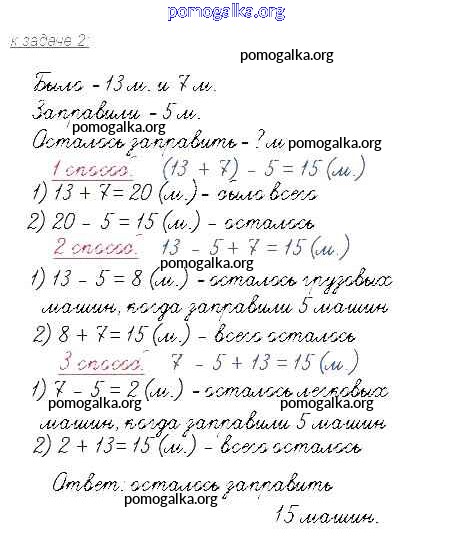 pomogalka.org
к задаче 2:
pomogalka.org
Было - 13 м. и 7 м.
Заправили - 5 м.
pomogalka.org
Осталось заправить - ? м pomogalka.org
1 способ. (13 + 7) - 5 = 15 (м.)
1) 13 + 7 = 20 (м.) - было всего
2) 20 - 5 = 15 (м.) - осталось
2 способ. 13 - 5 + 7 = 15 (м.)
pomogalka.org
1) 13 - 5 = 8 (м.) - осталось грузовых
машин, когда заправили 5 машин
2) 8 + 7 = 15 (м.) - всего осталось
3 способ. 7 - 5 + 13 = 15 (м.)
1) 7 - 5 = 2 (м.) - осталось легковых
pomogalka.org pomogalka.org
машин, когда заправили 5 машин
2) 2 + 13 = 15 (м.) - всего осталось
Ответ: осталось заправить
pomogalka.org
15 машин.